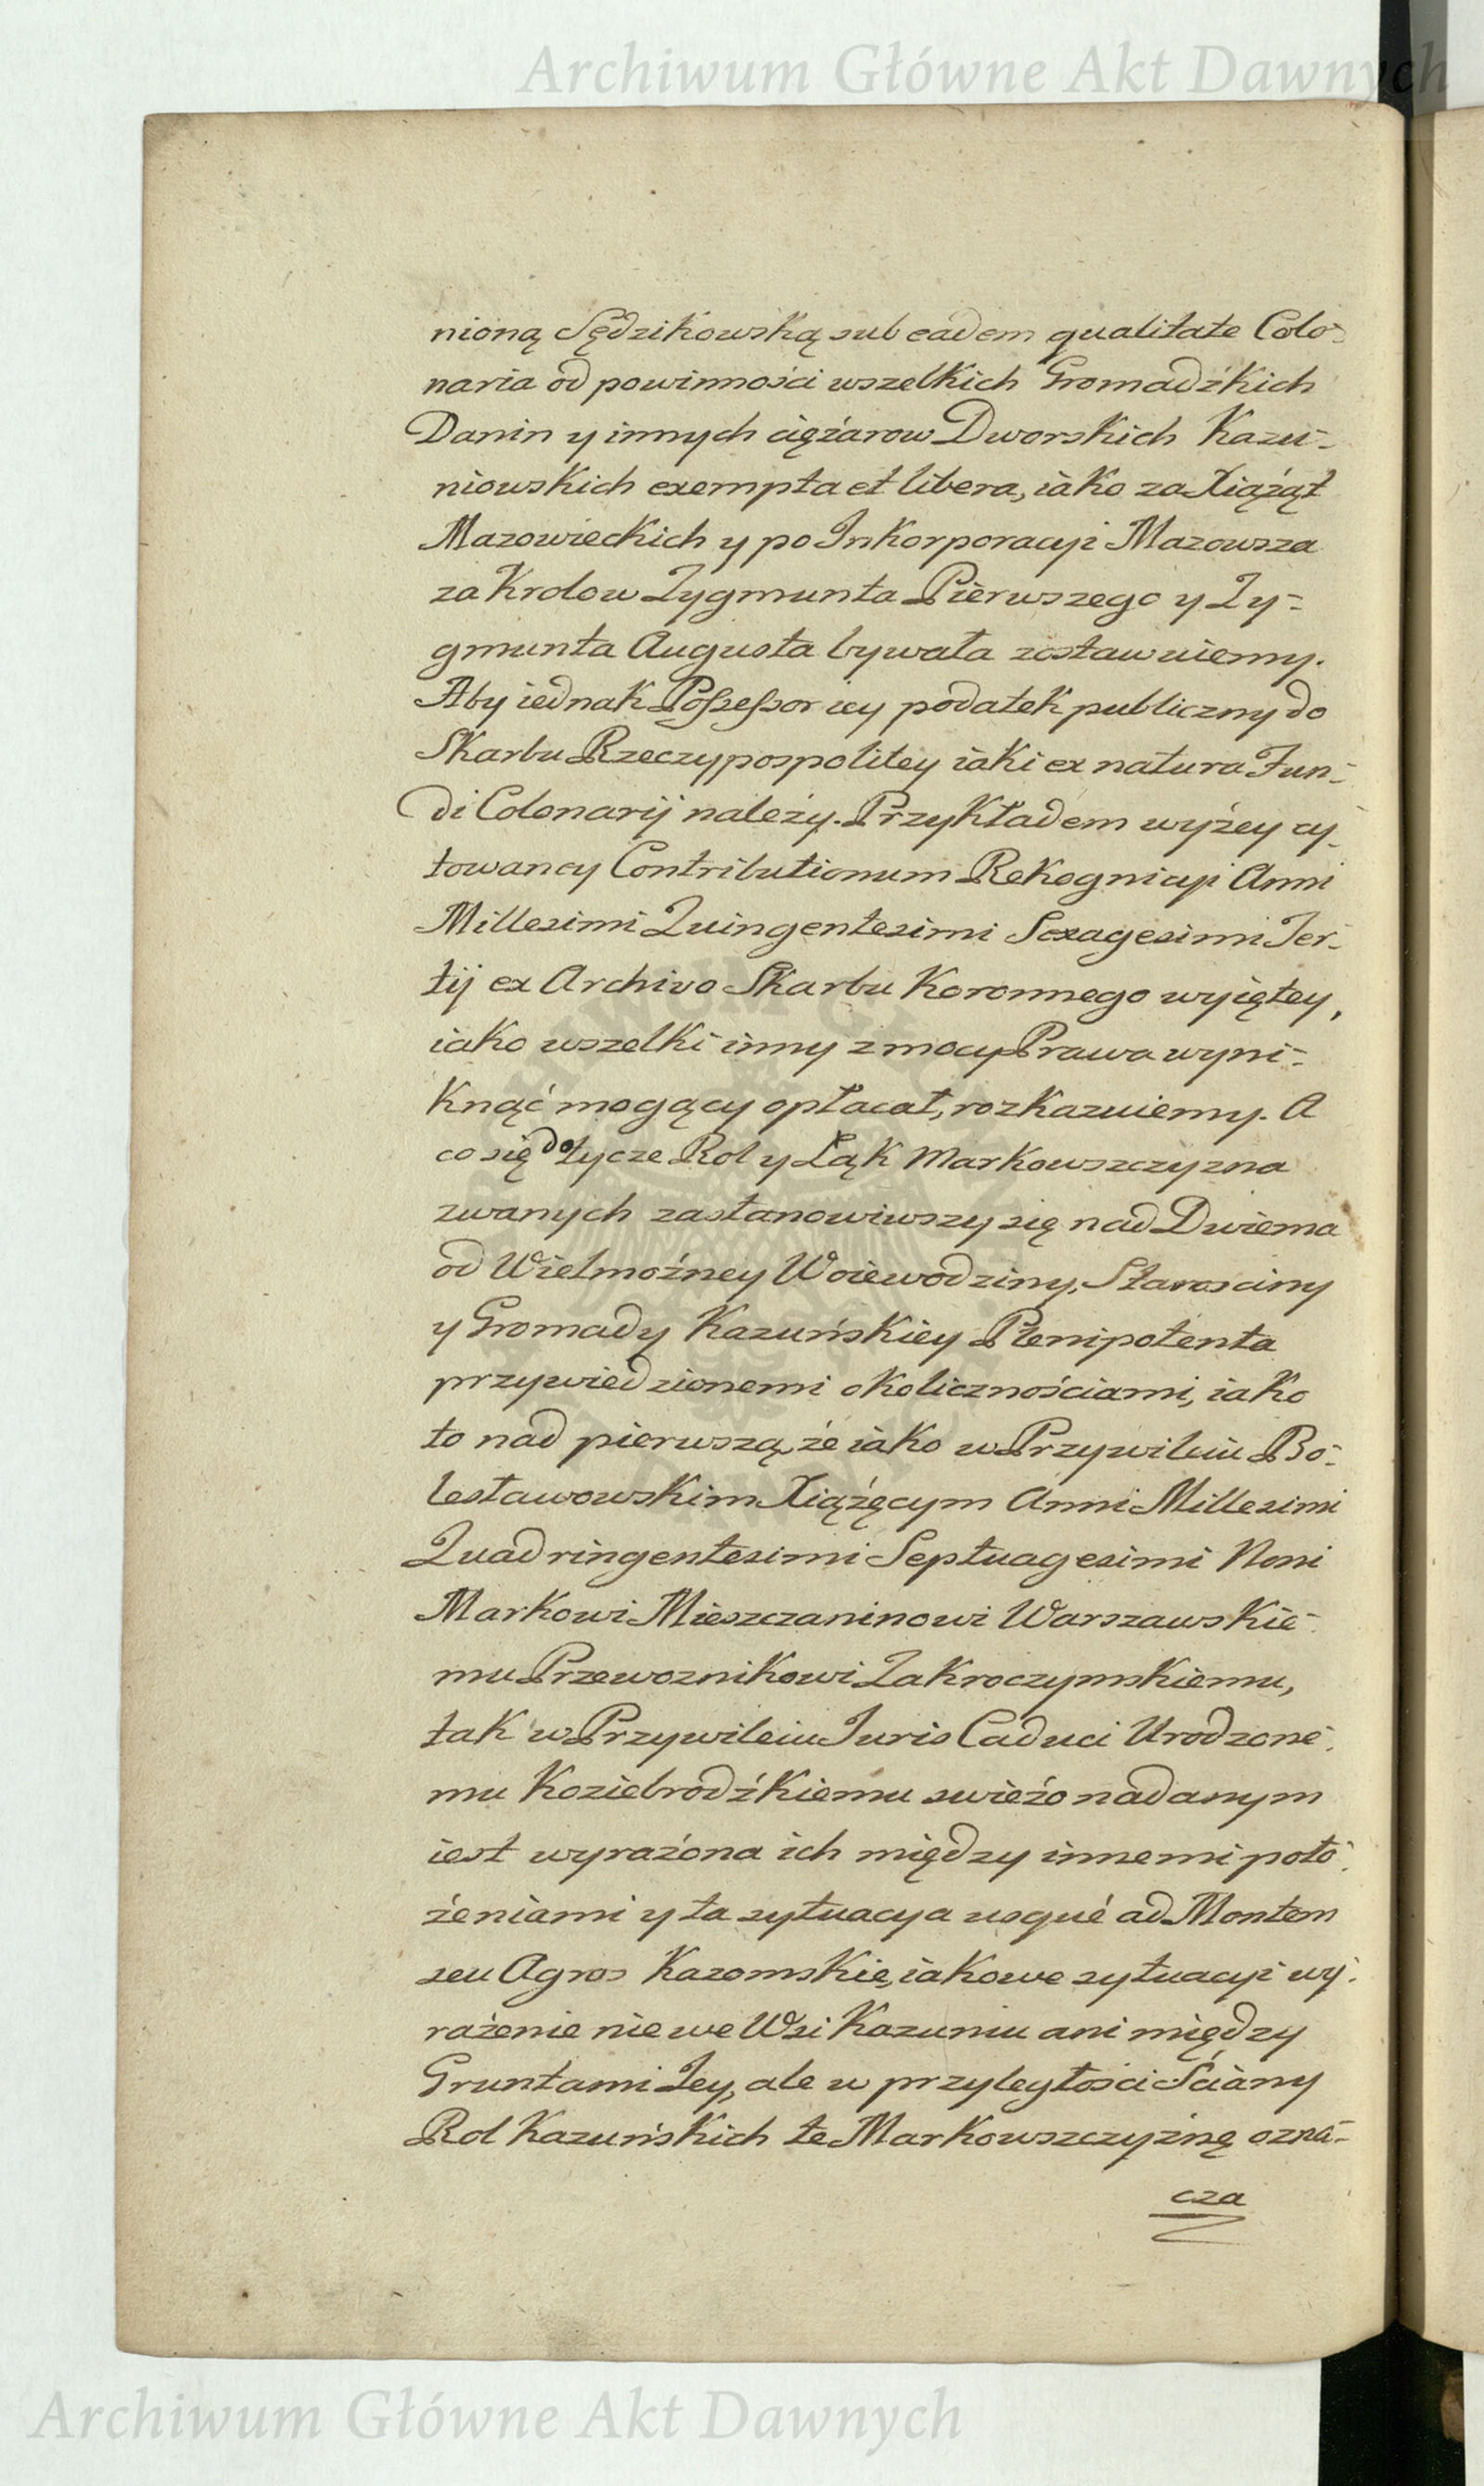 Archiwum Główne Akt Dawnych
nioną Sędzikowską sub eadem qualitate Colo-
naria od powinności wszelkich Gromadźkich
Danin y innych ciężarow Dworskich Kazu-
niowskich exempta et libera, iako za Xiążąt
Mazowieckich y po Inkorporacyi Mazowsza
za Krolow Zygmunta Pierwszego y Zy-
gmunta Augusta bywała zostawuiemy.
Aby iednak Possessor iey podatek publiczny do
Skarbu Rzeczypospolitey iaki ex natura Fun-
di Colonarij należy. Przykładem wyżey cy-
towaney Contributionum Rekognicyi Anni
Millesimi Quingentesimi Sexagesimi Ter-
tij ex Archivo Skarbu Koronnego wyiętey,
iako wszelki inny z mocy Prawa wyni-
knąć mogący opłacał, rozkazuiemy. A
co się dotycze Rol y Łąk Markowszczyzna
zwanych zastanowiwszy się nad Dwiema
od Wielmożney Woiewodziny, Starosciny
y Gromady Kazuńskiey Plenipotenta
przywiedzionemi okolicznościami, iako
to nad pierwszą, że iako w Przywileiu Bo-
lesławowskim Xiążęcym Anni Millesimi
Quadringentesimi Septuagesimi Noni
Markowi Mieszczaninowi Warszawskie-
mu Przewoznikowi Zakroczymskiemu,
tak w Przywileiu Juris Caduci Urodzone-
mu Koziebrodźkiemu swieżo nadanym
iest wyrażona ich między innemi poło-
żeniami y ta sytuacya usqué ad Montem
seu Agros Kazomskie, iakowe sytuacyi wy-
rażenie nie we Wsi Kazuniu ani między
Gruntami Jey, ale w przyległości Ściany
Rol Kazuńskich te Markowszczyznę ozna-
cza
Archiwum Główne Akt Dawnych